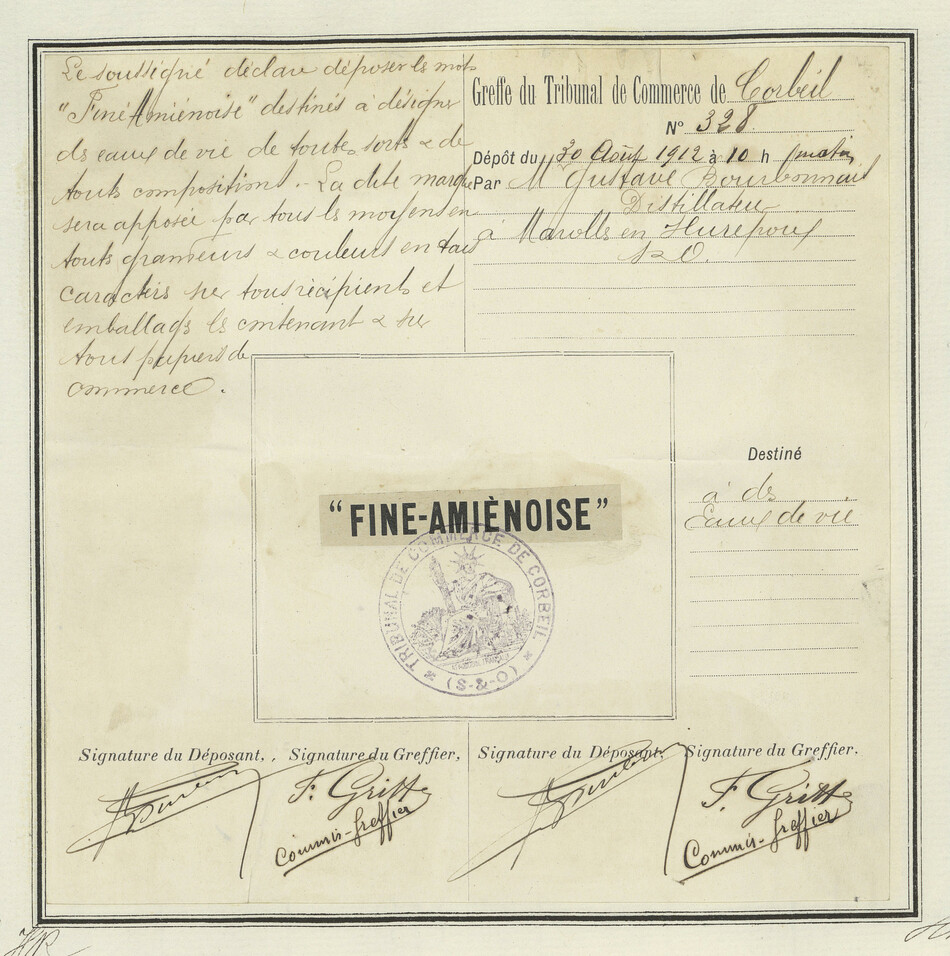 Le soussigné déclare déposer les mots
"Fine Amiénoise" destinés à désigner
des eaux de vie de toutes sorts & de
touts compositions. - La dite marque
sera apposée par tous les moyens en
touts grandeurs & couleurs en tous
caractères sur tous récipients et
emballages les contenant & sur
tous papiers de
commerce.
Greffe du Tribunal de Commerce de Corbeil
N° 328
Dépôt du 30 Août 1912 à 10 h matin
Par M Gustave Bourbonnais
Distillateur
à Marolles en Hurepoix
S&O.
"FINE-AMIÈNOISE"
TRIBUNAL DE COMMERCE DE CORBEIL
(S-&-O)
Destiné
à des
Eaux de vie
Signature du Déposant, Signature du Greffier,
F. Gritte
Commis-greffier
Signature du Déposant, Signature du Greffier.
F. Gritte
Commis-greffier